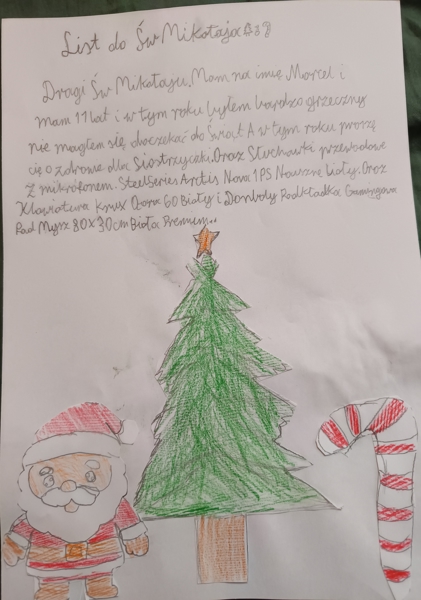 List do Św Mikołaja
Drogi Św Mikołaju. Mam na imię Marcel i
mam 11 lat i w tym roku byłem bardzo grzeczny
nie mogłem się doczekać do Świąt A w tym roku proszę
cię o zdrowie dla Siostrzyczki. Oraz Słuchawki przewodowe
Z mikrofonem. SteelSeries Arctis Nova 1PS Nauszne białe. Oraz
Klawiatura Krux 60 Biały i Podkładka Gamingowa
Pod Mysz 80X30cm Biała Premium